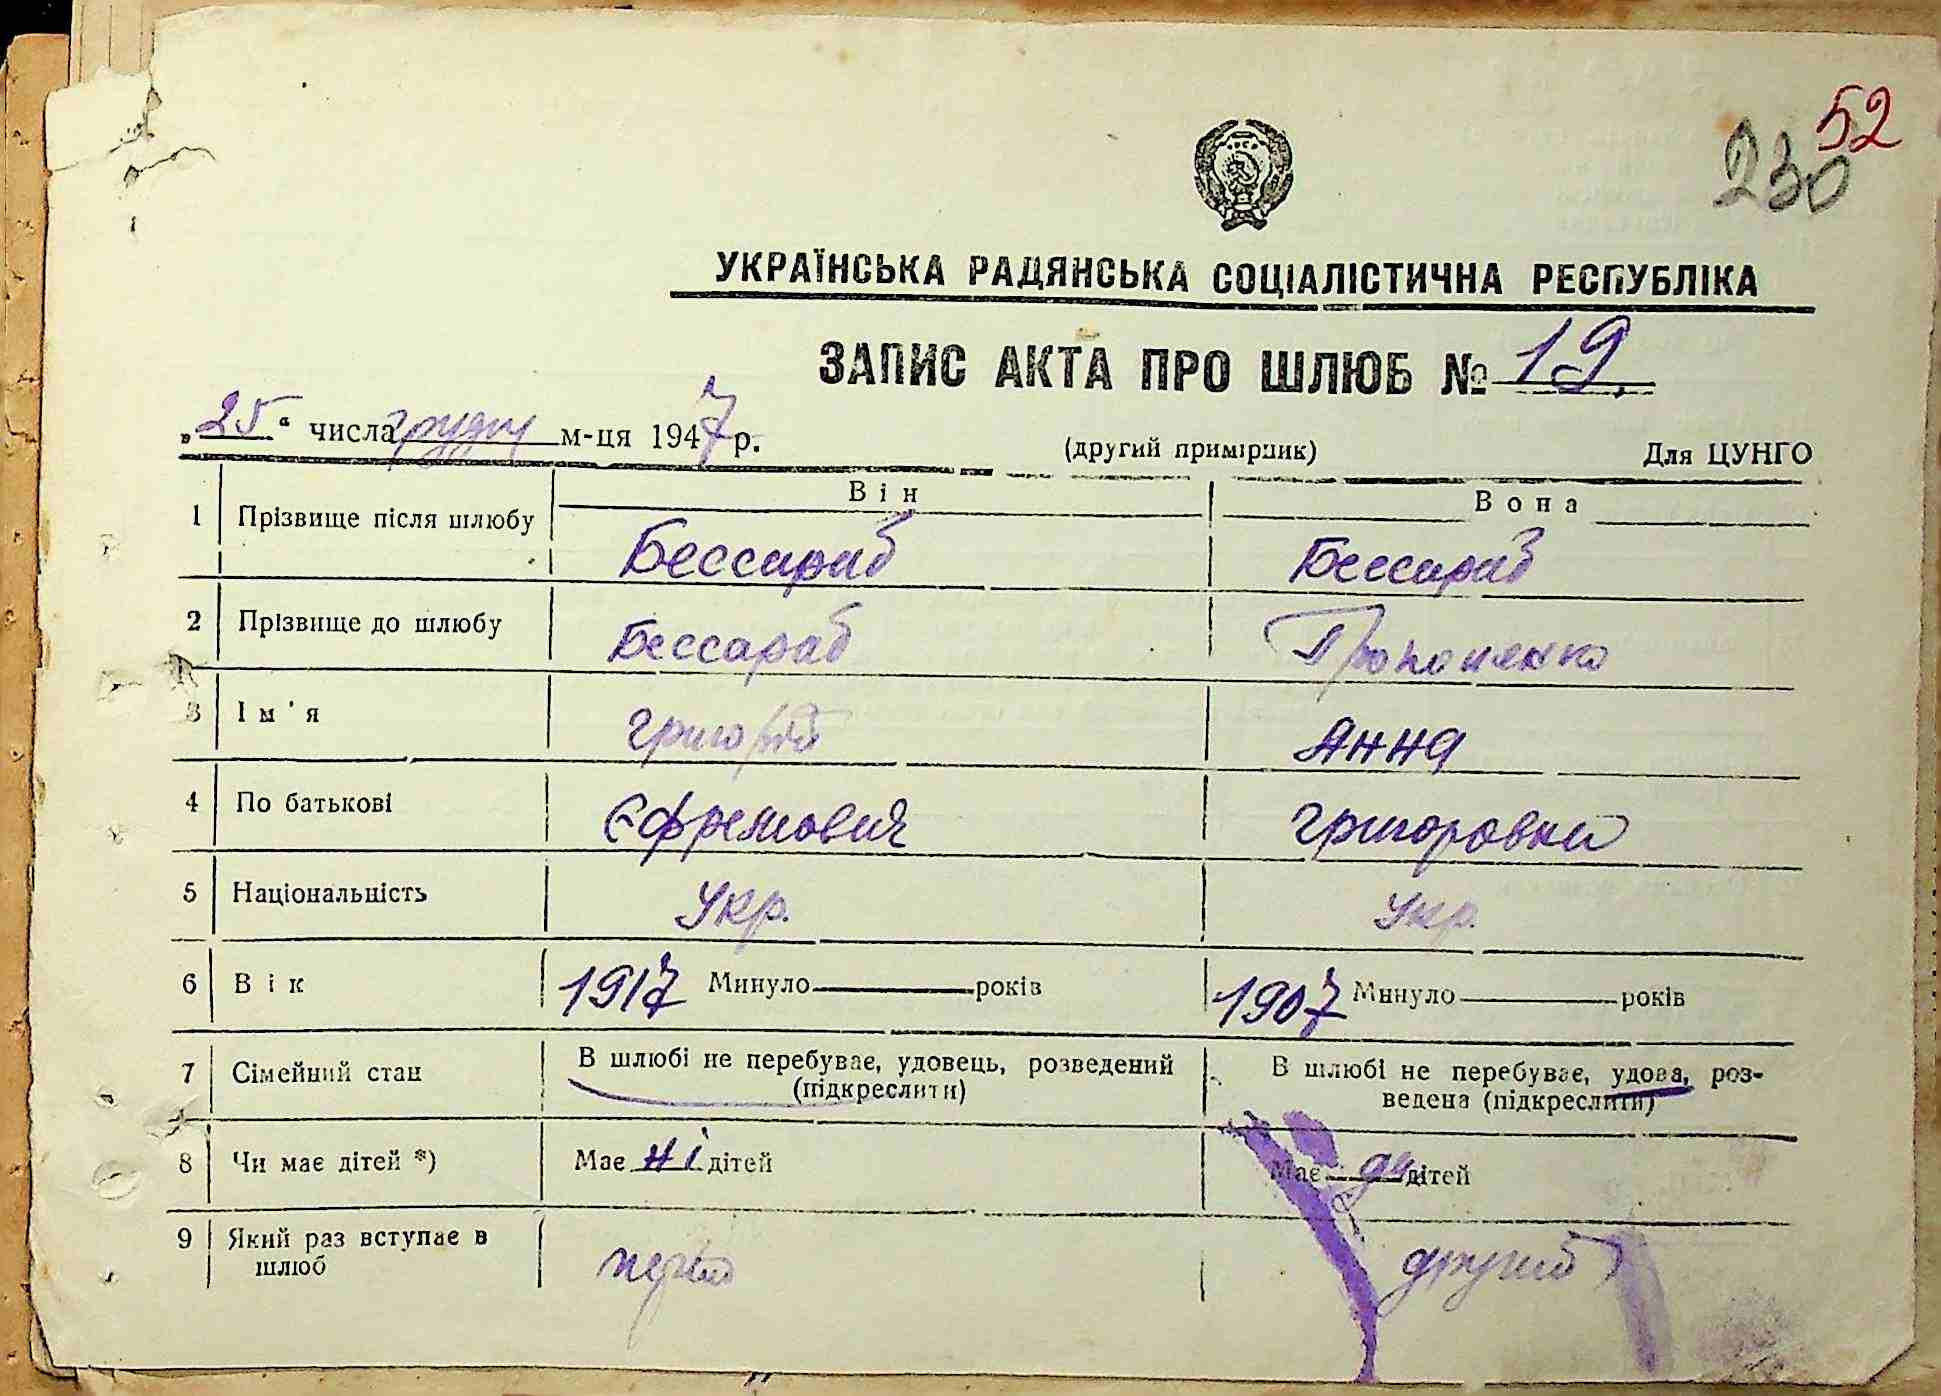 52
230
УКРАЇНСЬКА РАДЯНСЬКА СОЦІАЛІСТИЧНА РЕСПУБЛІКА
ЗАПИС АКТА ПРО ШЛЮБ № 19.
„25“ числа грудня м-ця 1947 р. (другий примірник) Для ЦУНГО
Він Вона
1 Прізвище після шлюбу Бессараб Бессараб
2 Прізвище до шлюбу Бессараб Прокопенко
3 Ім'я Григорій Анна
4 По батькові Єфремович Григоровна
5 Національність Укр. Укр.
6 Вік 1917 Минуло років 1907 Минуло років
7 Сімейний стан В шлюбі не перебуває, удовець, розведений (підкреслити) В шлюбі не перебуває, удова, роз-
ведена (підкреслити)
8 Чи має дітей *) Має ні дітей Має дітей
9 Який раз вступає в
шлюб другий